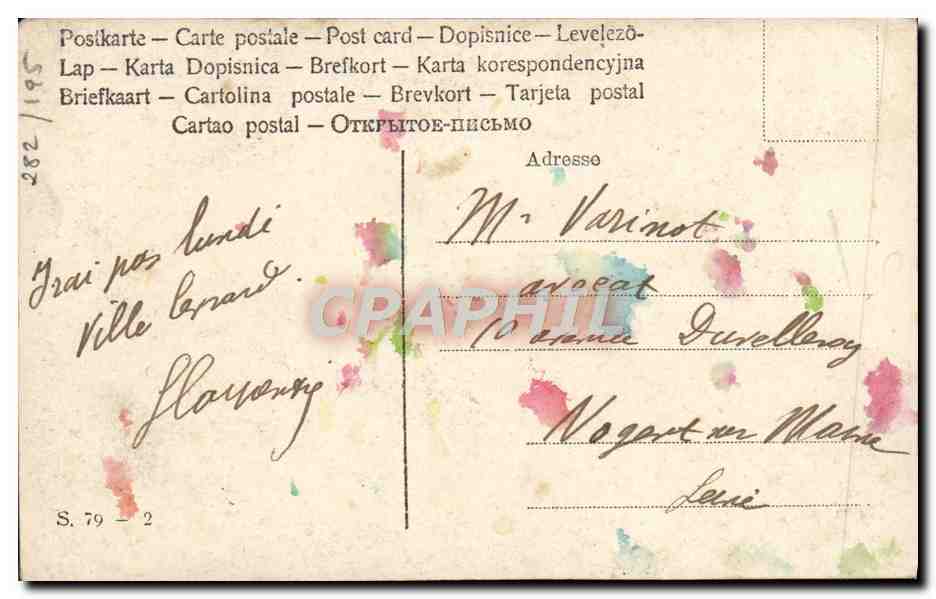 Postkarte — Carte postale — Post card — Dopisnice — Levelezö-
Lap — Karta Dopisnica — Brefkort — Karta korespondencyjna
Briefkaart — Cartolina postale — Brevkort — Tarjeta postal
Cartao postal — Открытое-письмо
282/195
Adresse
J'rai pas lundi
ville
S. 79 - 2
Mr Varinot
avocat
10 avenue Duvelleroy
Nogent sur Marne
Seine
CPAPHIL